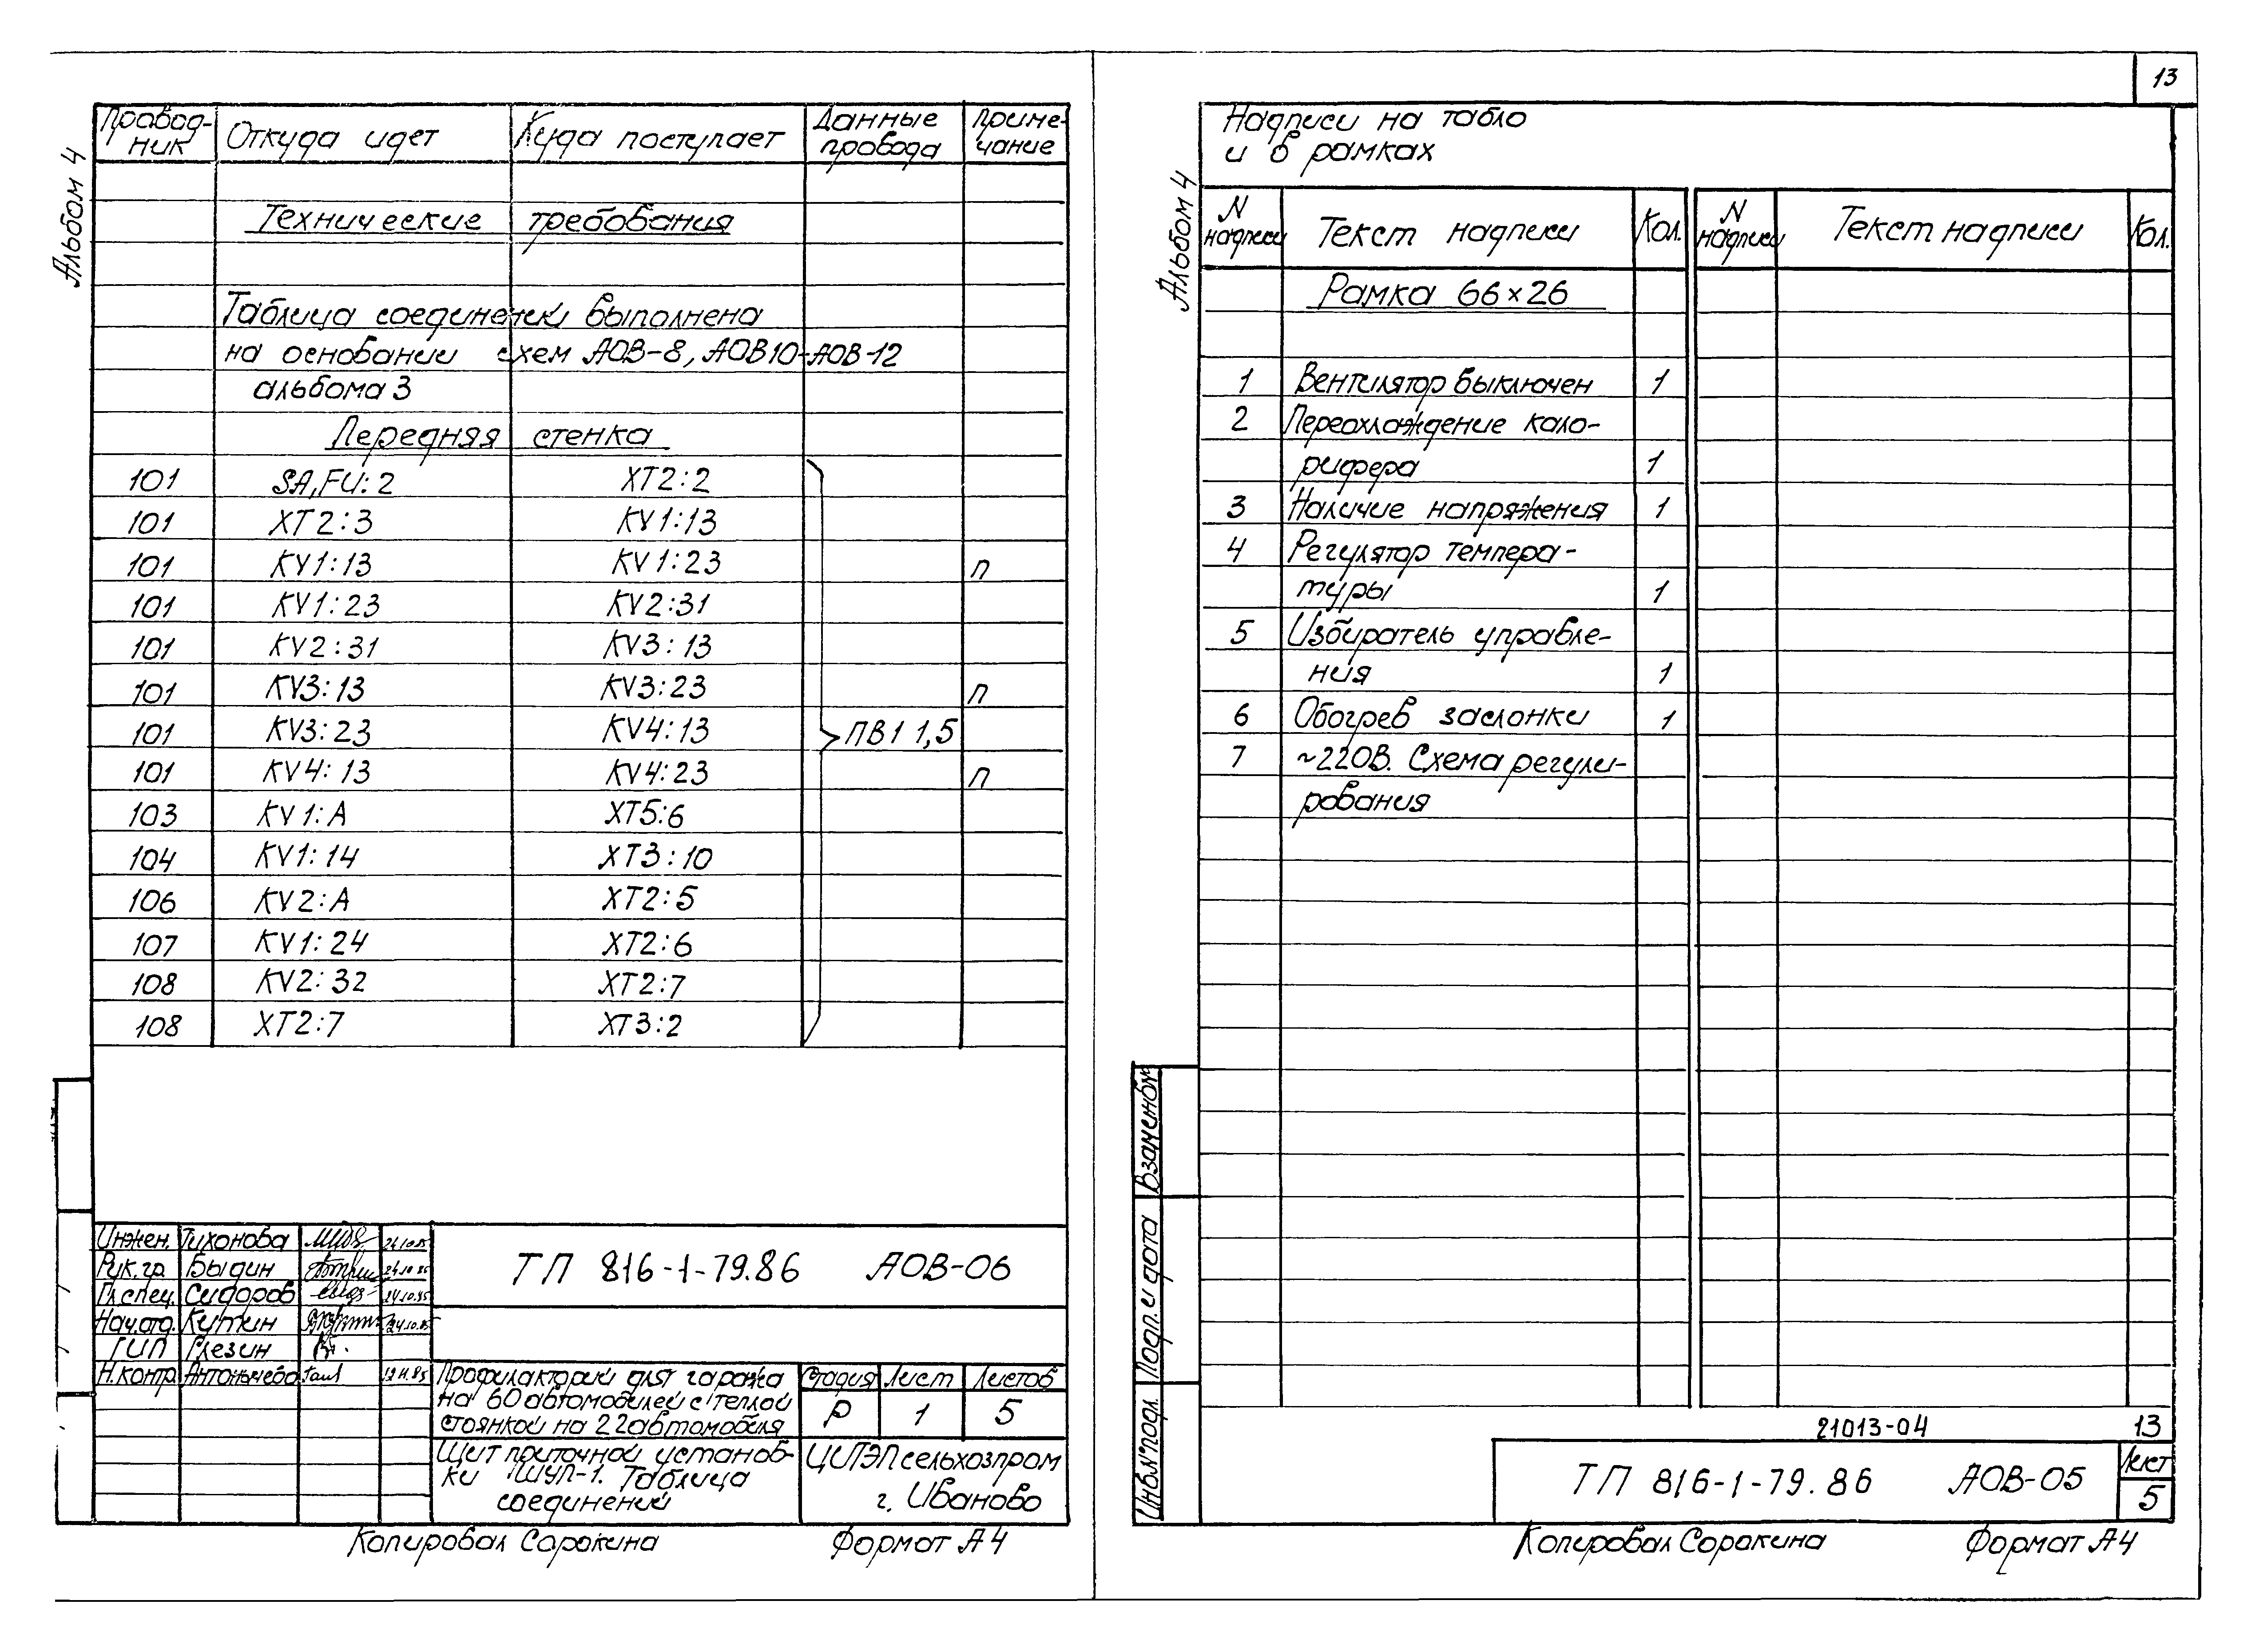 13
Альбом 4
Провод- Откуда идет Куда поступает Данные Приме-
ник провода чание
Технические требования
Таблица соединений выполнена
на основании схем АОВ-8, АОВ10-АОВ-12
альбома 3
Передняя стенка
101 SA,FU:2 XT2:2
101 XT2:3 KV1:13
101 KV1:13 KV1:23 п
101 KV1:23 KV2:31
101 KV2:31 KV3:13
101 KV3:13 KV3:23 п
101 KV3:23 KV4:13 ПВ1 1,5
101 KV4:13 KV4:23 п
103 KV1:A XT5:6
104 KV1:14 XT3:10
106 KV2:A XT2:5
107 KV1:24 XT2:6
108 KV2:32 XT2:7
108 XT2:7 XT3:2
Инжен. Тихонова 24.10.85
Рук.гр. Быдин 24.10.85
Гл.спец. Сидоров 24.10.85
Нач.отд. Кутин 24.10.85
ГИП Глезин
Н.контр. 12.11.85
ТП 816-1-79.86 АОВ-06
Профилакторий для гаража
на 60 автомобилей с теплой
стоянкой на 22автомобиля
Стадия Лист Листов
Р 1 5
Щит приточной установ-
ки ЩУП-1. Таблица
соединений
ЦИТЭПсельхозпром
г. Иваново
Копировал Сорокина Формат А4
Альбом 4
Надписи на табло
и в рамках
N надписи Текст надписи Кол. N надписи Текст надписи Кол.
Рамка 66×26
1 Вентилятор выключен 1
2 Переохлаждение кало-
рифера 1
3 Наличие напряжения 1
4 Регулятор темпера-
туры 1
5 Избиратель управле-
ния 1
6 Обогрев заслонки 1
7 ~220В. Схема регули-
рования
Взам.инв№
Подп. и дата
Инв.№подл.
21013-04 13
ТП 816-1-79.86 АОВ-05
Лист
5
Копировал Сорокина Формат А4